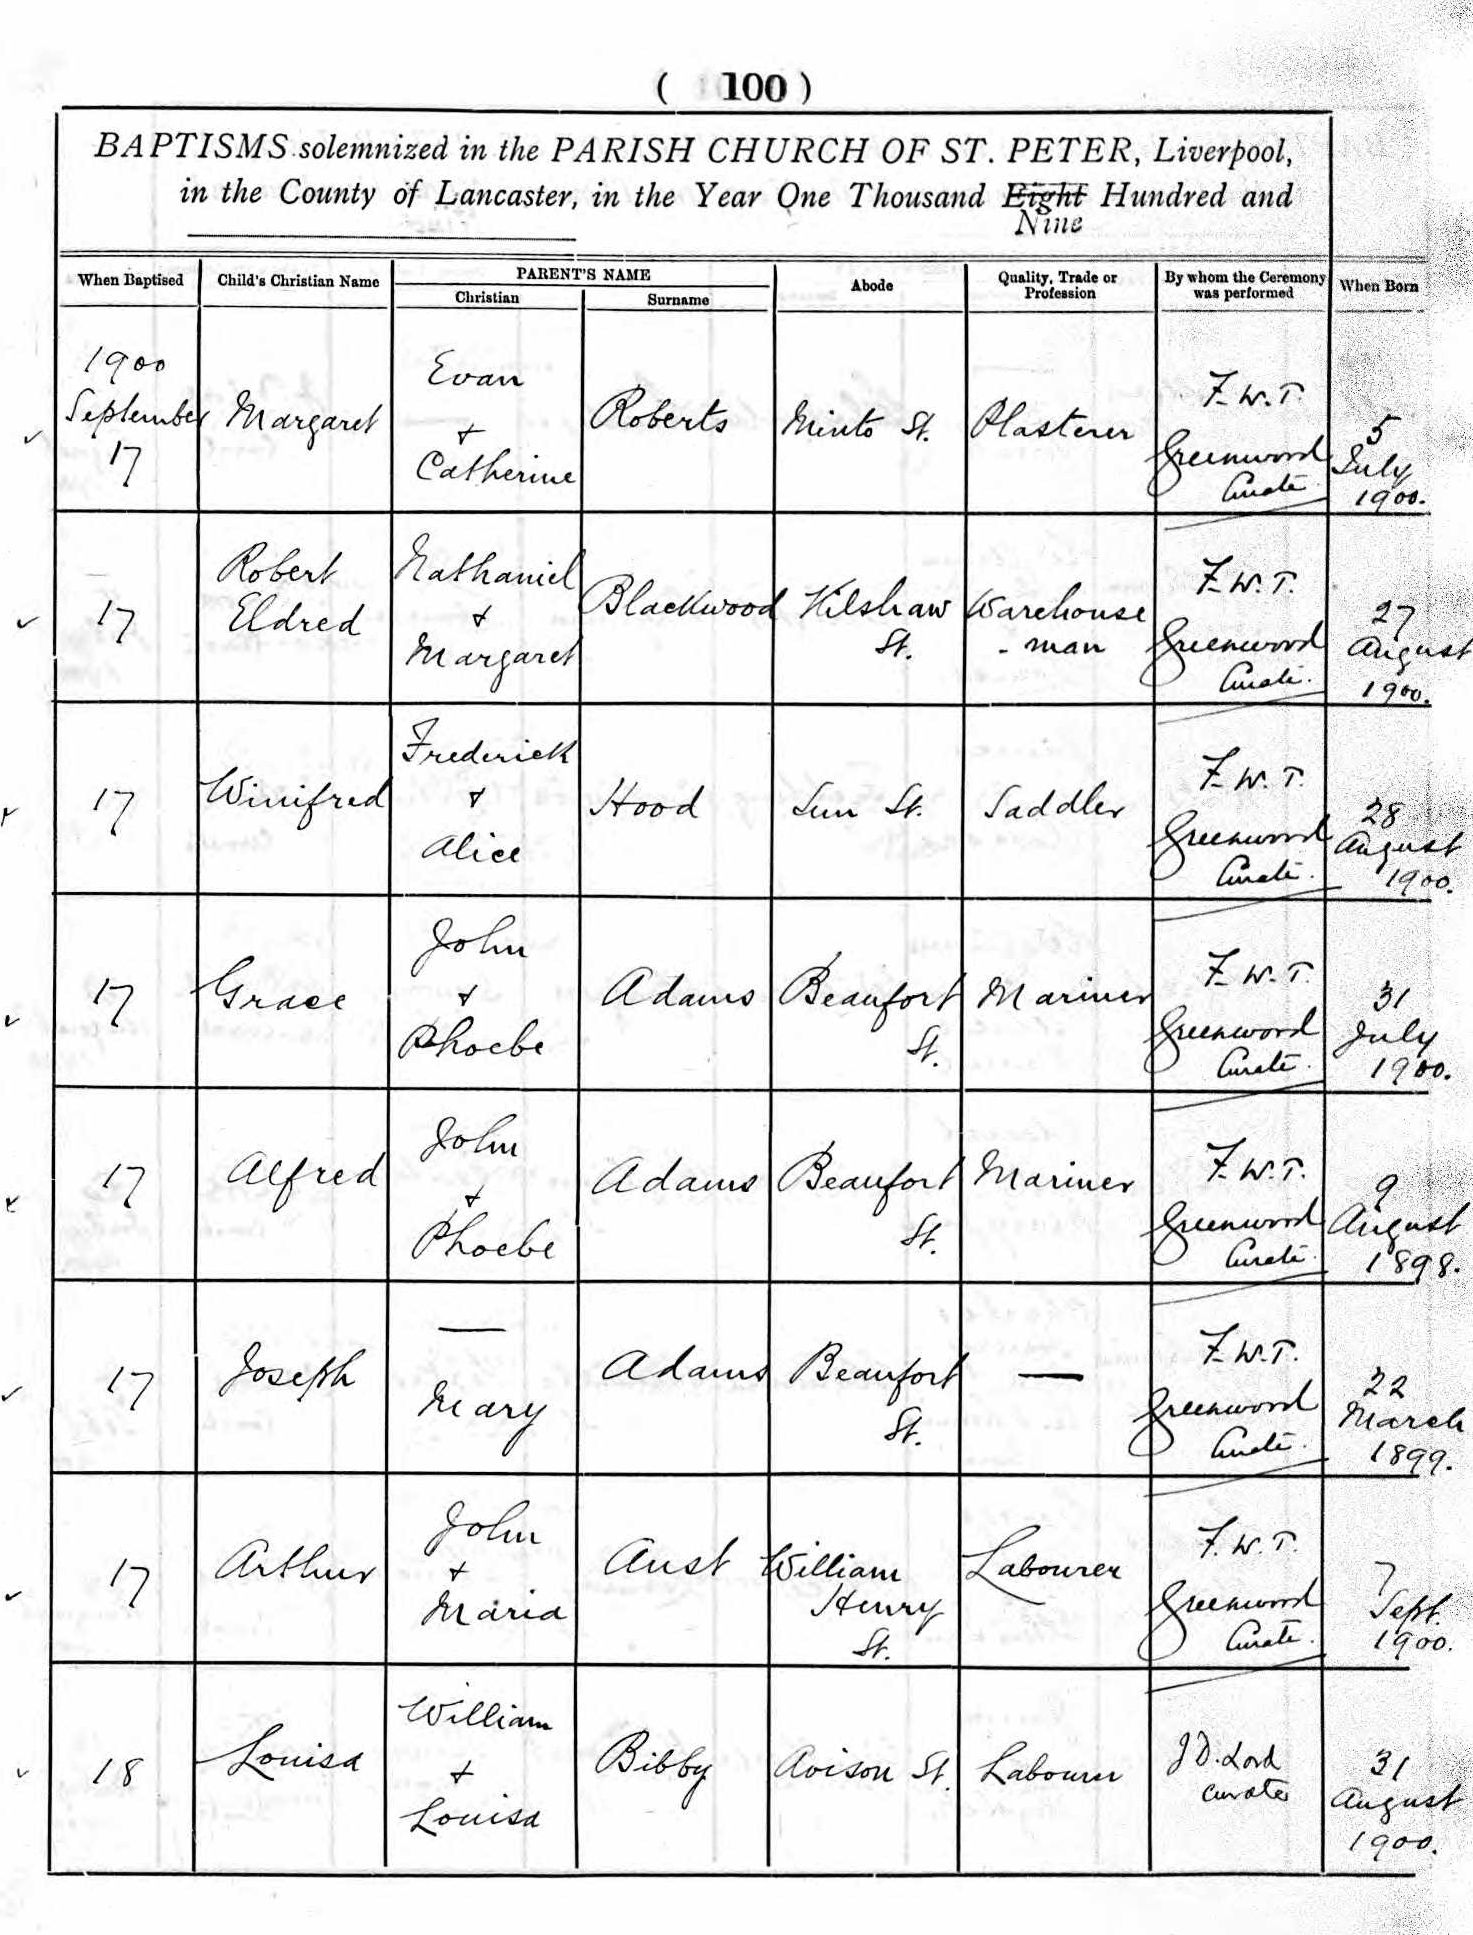 ( 100 )
BAPTISMS solemnized in the PARISH CHURCH OF ST. PETER, Liverpool,
in the County of Lancaster, in the Year One Thousand Eight Hundred and
Nine
When Baptised
Child's Christian Name
PARENT'S NAME
Christian
Surname
Abode
Quality, Trade or
Profession
By whom the Ceremony
was performed
When Born
1900
September
17
Margaret
Evan
+
Catherine
Roberts
Minto St.
Plasterer
F. W. T.
Greenwood
Curate.
5
July
1900.
17
Robert
Eldred
Nathaniel
+
Margaret
Blackwood
Kilshaw
St.
Warehouse
- man
F. W. T.
Greenwood
Curate.
27
August
1900.
17
Winifred
Frederick
+
Alice
Hood
Sun St.
Saddler
F. W. T.
Greenwood
Curate.
28
August
1900.
17
Grace
John
+
Phoebe
Adams
Beaufort
St.
Mariner
F. W. T.
Greenwood
Curate.
31
July
1900.
17
Alfred
John
+
Phoebe
Adams
Beaufort
St.
Mariner
F. W. T.
Greenwood
Curate.
9
August
1898.
17
Joseph
—
Mary
Adams
Beaufort
St.
—
F. W. T.
Greenwood
Curate.
22
March
1899.
17
Arthur
John
+
Maria
Aust
William
Henry
St.
Labourer
F. W. T.
Greenwood
Curate.
7
Sept.
1900.
18
Louisa
William
+
Louisa
Bibby
Avison St.
Labourer
J D. Lord
Curate
31
August
1900.